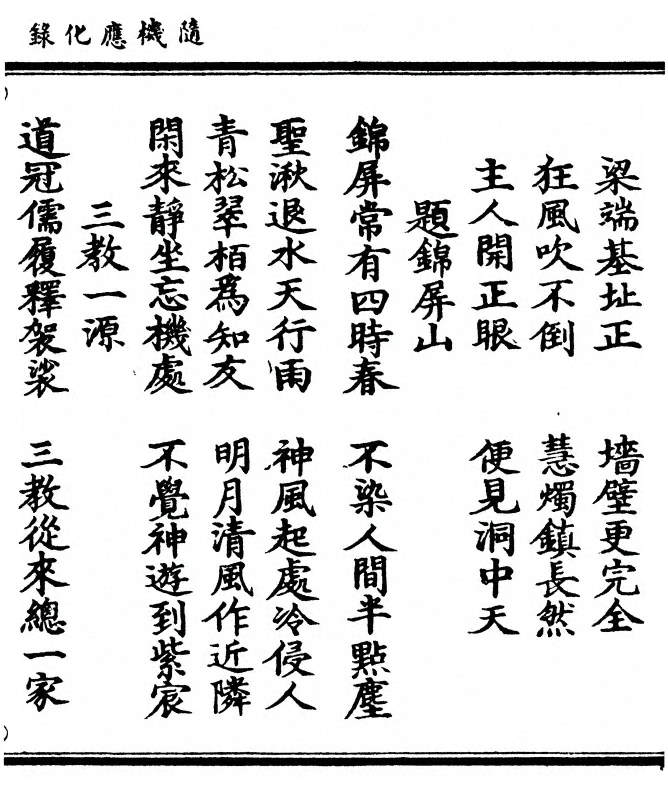 隨機應化錄
梁端基址正 墻壁更完全
狂風吹不倒 慧燭鎮長然
主人開正眼 便見洞中天
題錦屏山
錦屏常有四時春 不染人間半點塵
聖湫退水天行雨 神風起處冷侵人
青松翠栢為知友 明月清風作近隣
閑來靜坐忘機處 不覺神遊到紫宸
三教一源
道冠儒履釋袈裟 三教從來總一家